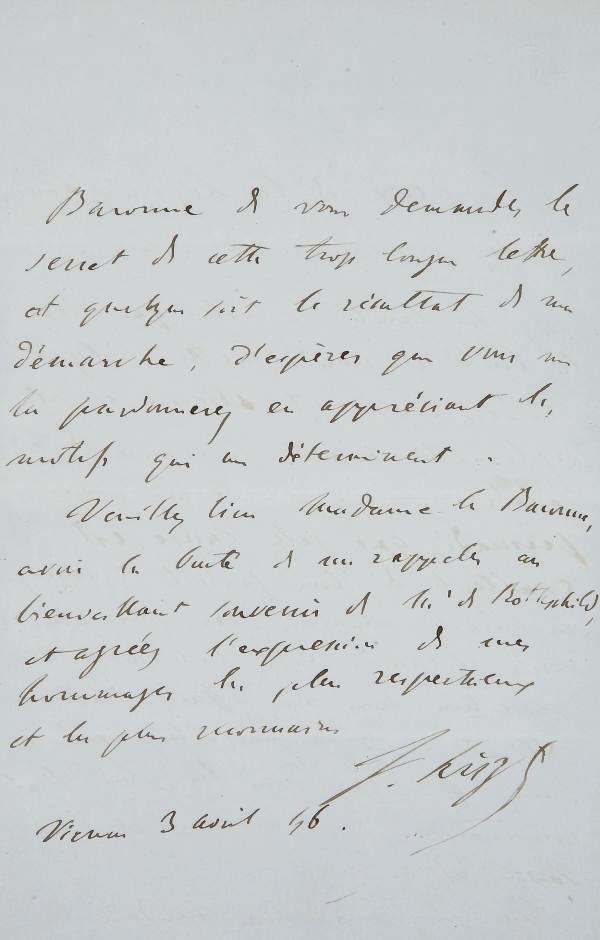 Baronne de vous demander le
secret de cette trop longue lettre,
et quelque soit le résultat de ma
démarche, j'espère que vous me
la pardonnerez en appréciant les
motifs qui me déterminent.
Veuillez bien Madame la Baronne,
avoir la bonté de me rappeler au
bienveillant souvenir de Mr de Rothschild,
et agréez l'expression de mes
hommages les plus respectueux
et les plus reconnaissants
F. Liszt
Vienne 3 avril 46.